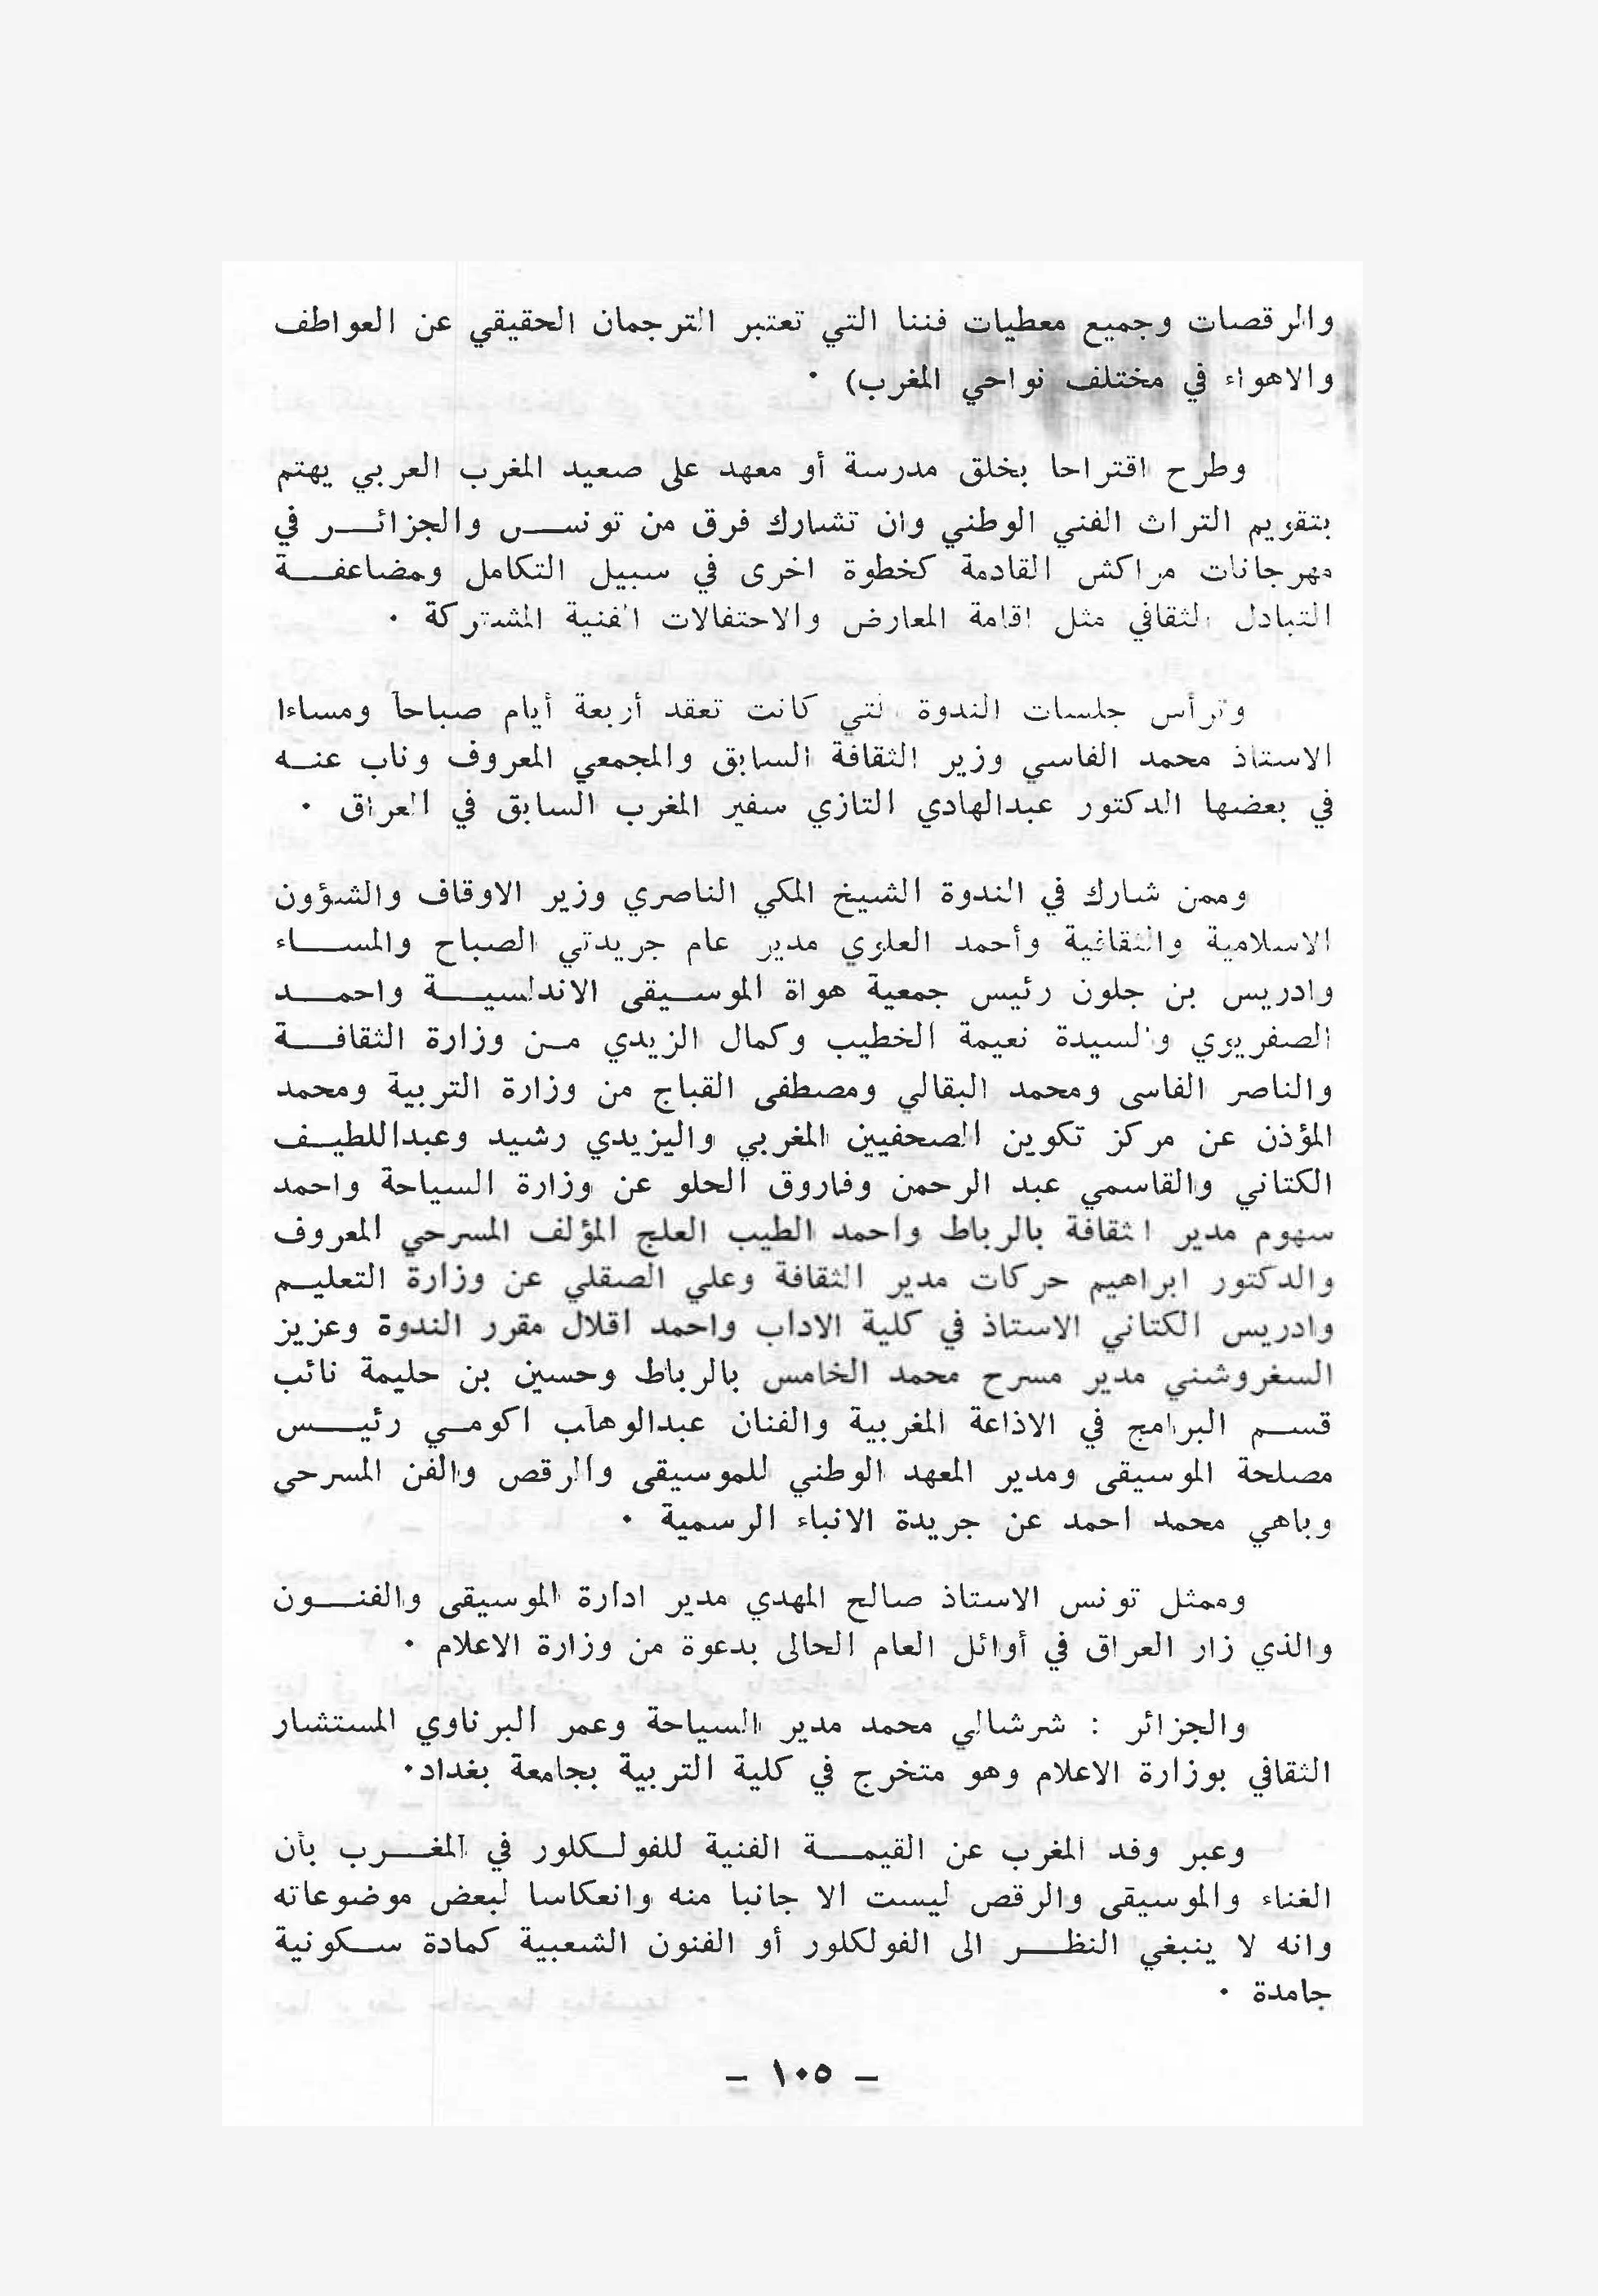 والرقصات وجميع معطيات فننا التي تعتبر الترجمان الحقيقي عن العواطف
والاهواء في مختلف نواحي المغرب) ٠
وطرح اقتراحا بخلق مدرسة أو معهد على صعيد المغرب العربي يهتم
بتقويم التراث الفني الوطني وان تشارك فرق من تونس والجزائر في
مهرجانات مراكش القادمة كخطوة اخرى في سبيل التكامل ومضاعفة
التبادل الثقافي مثل اقامة المعارض والاحتفالات الفنية المشتركة ٠
وترأس جلسات الندوة التي كانت تعقد أربعة أيام صباحاً ومساءا
الاستاذ محمد الفاسي وزير الثقافة السابق والمجمعي المعروف وناب عنه
في بعضها الدكتور عبدالهادي التازي سفير المغرب السابق في العراق ٠
وممن شارك في الندوة الشيخ المكي الناصري وزير الاوقاف والشؤون
الاسلامية والثقافية وأحمد العلوي مدير عام جريدتي الصباح والمساء
وادريس بن جلون رئيس جمعية هواة الموسيقى الاندلسية واحمد
الصفريوي والسيدة نعيمة الخطيب وكمال الزيدي من وزارة الثقافة
والناصر الفاسى ومحمد البقالي ومصطفى القباج من وزارة التربية ومحمد
المؤذن عن مركز تكوين الصحفيين المغربي واليزيدي رشيد وعبداللطيف
الكتاني والقاسمي عبد الرحمن وفاروق الحلو عن وزارة السياحة واحمد
سهوم مدير الثقافة بالرباط واحمد الطيب العلج المؤلف المسرحي المعروف
والدكتور ابراهيم حركات مدير الثقافة وعلي الصقلي عن وزارة التعليم
وادريس الكتاني الاستاذ في كلية الاداب واحمد اقلال مقرر الندوة وعزيز
السغروشني مدير مسرح محمد الخامس بالرباط وحسين بن حليمة نائب
قسم البرامج في الاذاعة المغربية والفنان عبدالوهاب اكومي رئيس
مصلحة الموسيقى ومدير المعهد الوطني للموسيقى والرقص والفن المسرحى
وباهي محمد احمد عن جريدة الانباء الرسمية ٠
وممثل تونس الاستاذ صالح المهدي مدير ادارة الموسيقى والفنون
والذي زار العراق في أوائل العام الحالى بدعوة من وزارة الاعلام ٠
والجزائر : شرشالي محمد مدير السياحة وعمر البرناوي المستشار
الثقافي بوزارة الاعلام وهو متخرج في كلية التربية بجامعة بغداد٠
وعبر وفد المغرب عن القيمة الفنية للفولكلور في المغرب بأن
الغناء والموسيقى والرقص ليست الا جانبا منه وانعكاسا لبعض موضوعاته
وانه لا ينبغي النظر الى الفولكلور أو الفنون الشعبية كمادة سكونية
جامدة ٠
– ١٠٥ –